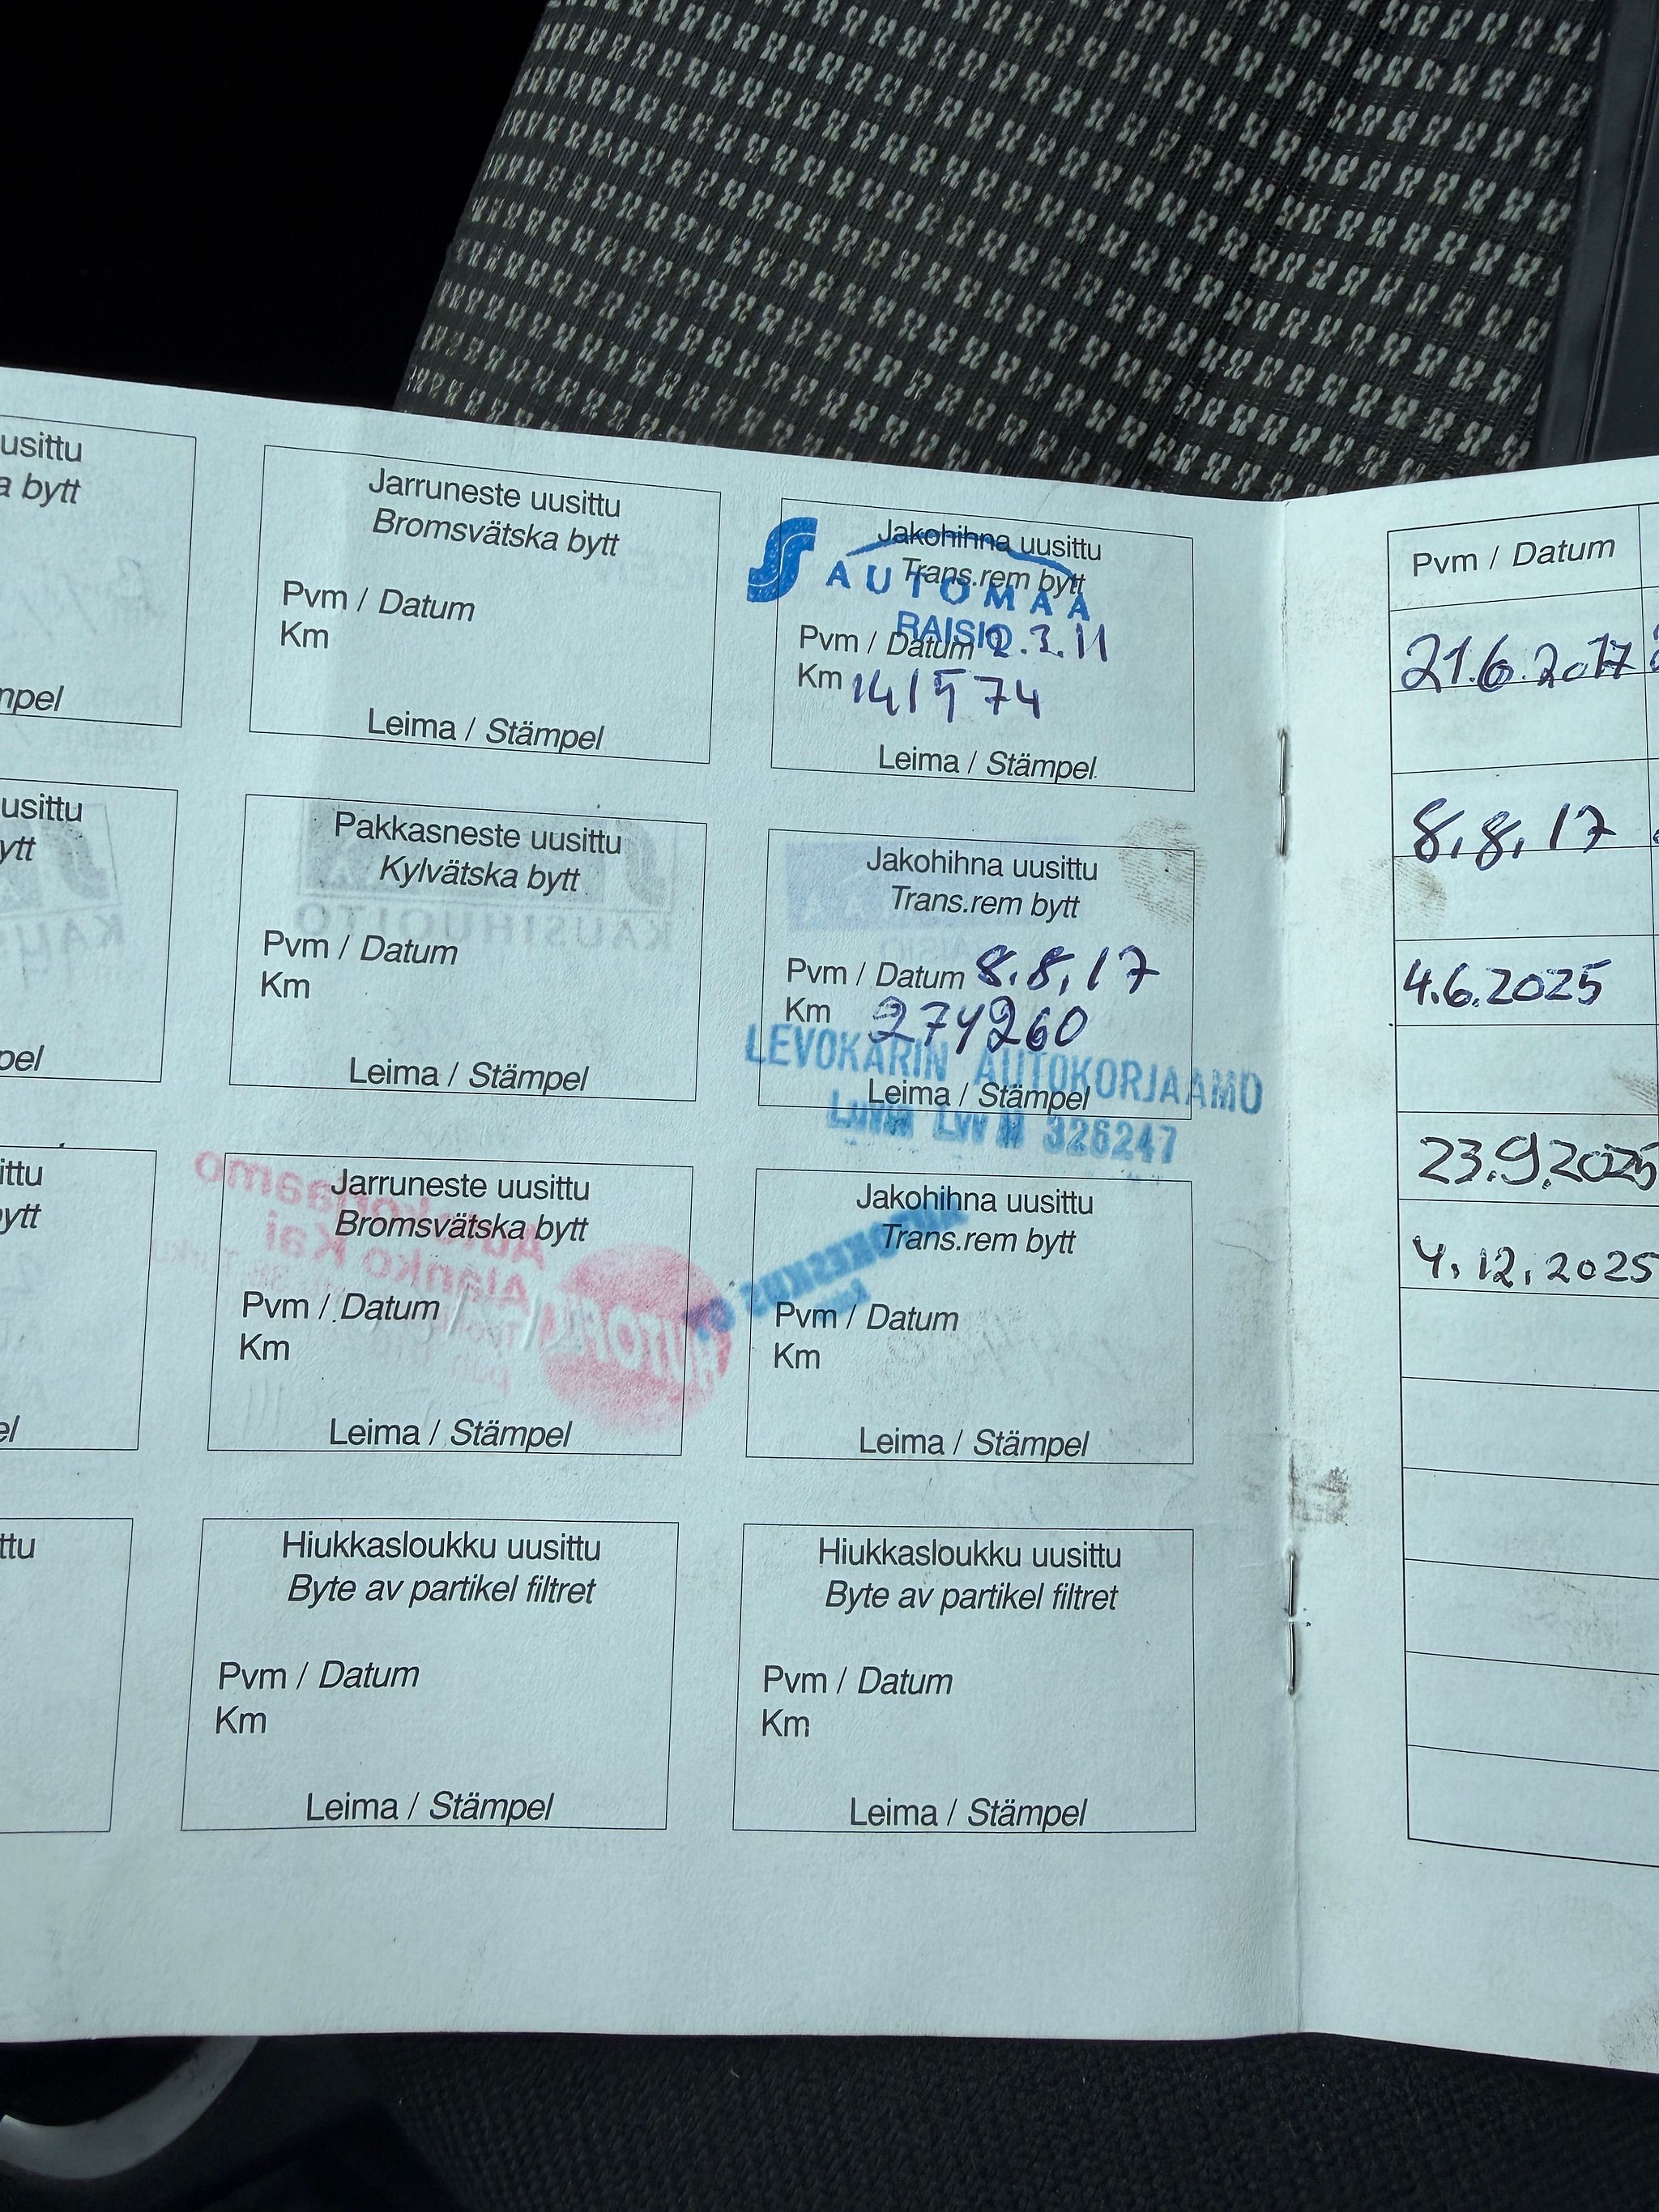 usittu
bytt
mpel
Jarruneste uusittu
Bromsvätska bytt
Pvm / Datum
Km
Leima / Stämpel
Jakohihna uusittu
Trans.rem bytt
AUTOMAA
RAISIO
Pvm / Datum 2.3.11
Km 141574
Leima / Stämpel
usittu
ytt
pel
Pakkasneste uusittu
Kylvätska bytt
KAUSIHUOLTO
Pvm / Datum
Km
Leima / Stämpel
Jakohihna uusittu
Trans.rem bytt
Pvm / Datum 8.8.17
Km 274260
LEVOKARIN AUTOKORJAAMO
Leima / Stämpel
326247
ittu
ytt
el
Jarruneste uusittu
Bromsvätska bytt
Autokorjaamo
Alanko Kai
Pvm / Datum
Km
Leima / Stämpel
Jakohihna uusittu
Trans.rem bytt
Pvm / Datum
Km
Leima / Stämpel
ttu
Hiukkasloukku uusittu
Byte av partikel filtret
Pvm / Datum
Km
Leima / Stämpel
Hiukkasloukku uusittu
Byte av partikel filtret
Pvm / Datum
Km
Leima / Stämpel
Pvm / Datum
21.6.2017
8.8.17
4.6.2025
23.9.2025
4.12.2025